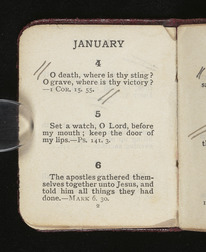 JANUARY
4
O death, where is thy sting?
O grave, where is thy victory?
—1 COR. 15. 55.
5
Set a watch, O Lord, before
my mouth; keep the door of
my lips.—PS. 141. 3.
6
The apostles gathered them-
selves together unto Jesus, and
told him all things they had
done.—MARK 6. 30.